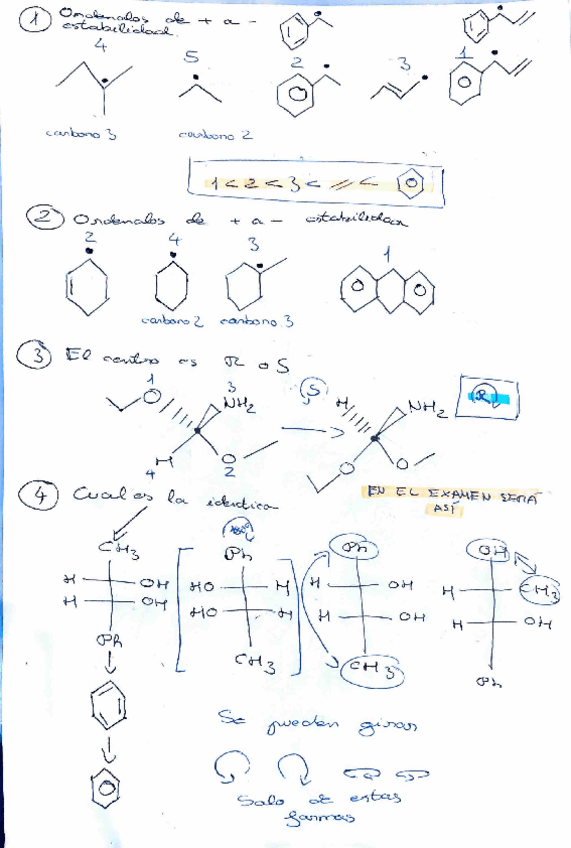 1 Ordenalos de + a -
estabilidad.
4 5 2 3 1
carbono 3 carbono 2
1 < 2 < 3 < = <
2 Ordenalos de + a - estabilidad
2 4 3 1
carbono 2 carbono 3
3 El centro es R o S
1 O 3 NH2 S H NH2 R
H 4 O 2 O O
EN EL EXAMEN SERÁ
ASÍ
4 Cual es la identica
CH3 Ph Ph OH
H OH HO H H OH H CH3
H OH HO H H OH H OH
Ph CH3 CH3 Ph
Se pueden girar
Solo de estas
formas